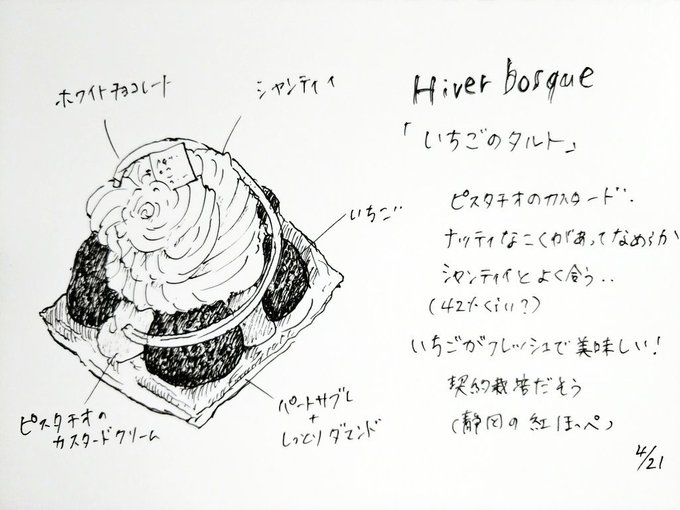 ホワイトチョコレート
シャンティイ
いちご
ピスタチオの
カスタードクリーム
パートサブレ
+
しっとりダマンド
Hiver bosque
「いちごのタルト」
ピスタチオのカスタード..
ナッティなこくがあってなめらか
シャンティイとよく合う..
(42%くらい?)
いちごがフレッシュで美味しい!
契約栽培だそう
(静岡の紅ほっぺ)
4/21